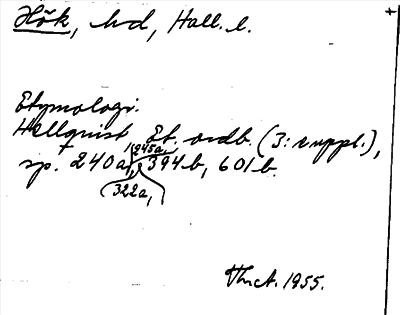 Hök, hd, Hall. l.
Etymologi.
Hellquist Et. ordb. (3: e uppl.),
sp. 240a, 245a, 394b, 601b.
322a,
1955.